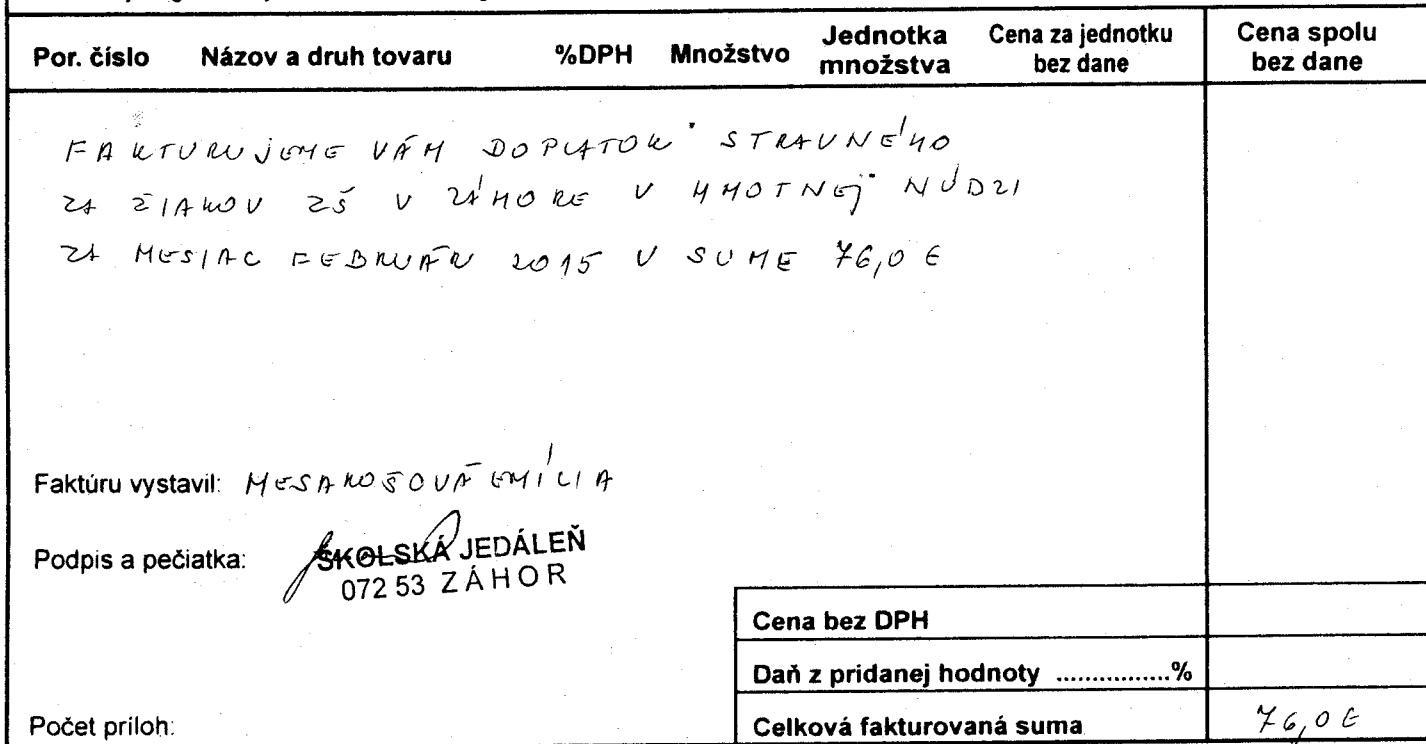 Por. číslo Názov a druh tovaru %DPH Množstvo Jednotka množstva Cena za jednotku bez dane Cena spolu bez dane
FAKTURUJEME VÁM DOPLATOK STRAVNÉHO
ZA ŽIAKOV ZŠ V ZÁHORE V HMOTNEJ NÚDZI
ZA MESIAC FEBRUÁR 2015 V SUME 76,0 €
Faktúru vystavil: MESAROŠOVÁ EMÍLIA
Podpis a pečiatka: ŠKOLSKÁ JEDÁLEŇ
072 53 ZÁHOR
Cena bez DPH
Daň z pridanej hodnoty ................%
Počet príloh: Celková fakturovaná suma 76,0 €